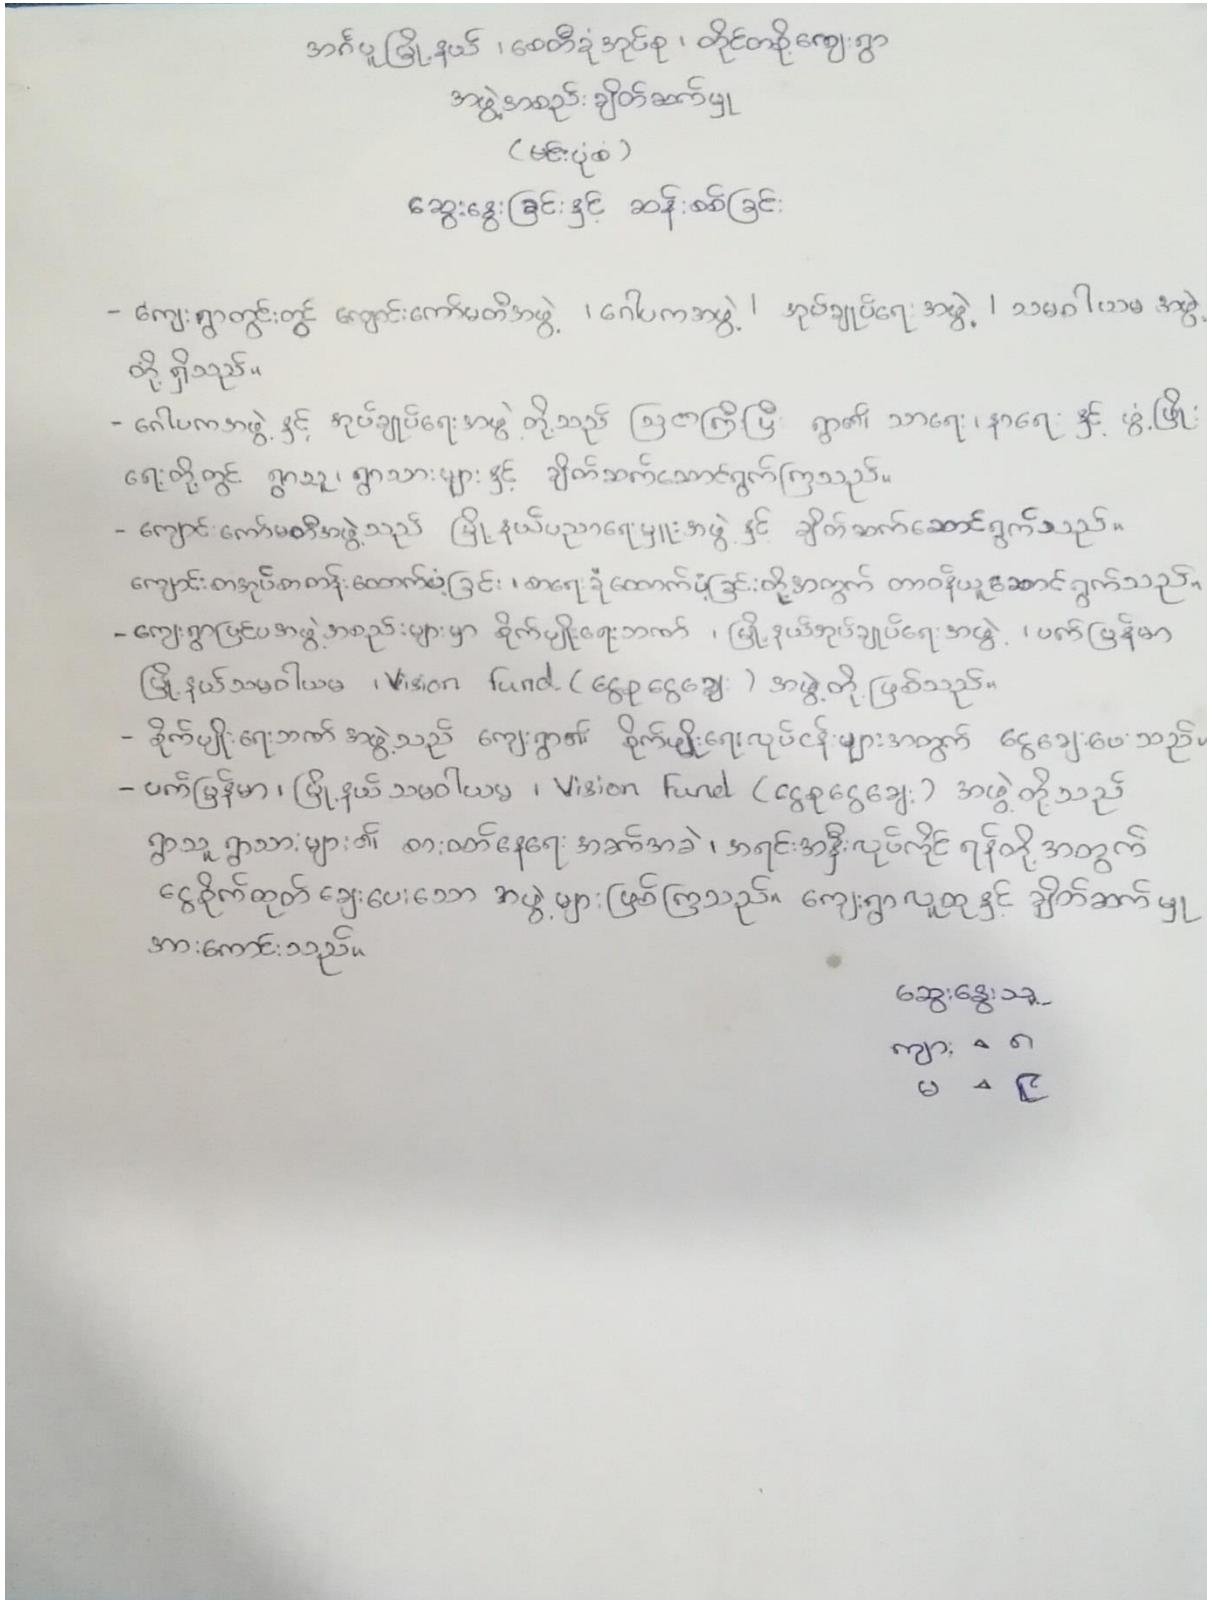 အင်္ဂပူမြို့နယ် ၊ စေတီခုံအုပ်စု ၊ တိုင်တစို့ကျေးရွာ
အဖွဲ့အစည်းချိတ်ဆက်မှု
(မင်းပုံစံ)
ဆွေးနွေးခြင်းနှင့် ဆန်းစစ်ခြင်း
- ကျေးရွာတွင်းတွင် ကျောင်းကော်မတီအဖွဲ့ ၊ ဂေါပကအဖွဲ့ ၊ အုပ်ချုပ်ရေးအဖွဲ့ ၊ သမဝါယမ အဖွဲ့
တို့ ရှိသည်။
- ဂေါပကအဖွဲ့ နှင့် အုပ်ချုပ်ရေးအဖွဲ့ တို့သည် ဩဇာကြီးပြီး ရွာ၏ သာရေး ၊ နာရေး နှင့် ဖွံ့ဖြိုး
ရေးတို့တွင် ရွာသူ ၊ ရွာသားများ နှင့် ချိတ်ဆက်ဆောင်ရွက်ကြသည်။
- ကျောင်းကော်မတီအဖွဲ့သည် မြို့နယ်ပညာရေးမှူးအဖွဲ့ နှင့် ချိတ်ဆက်ဆောင်ရွက်သည်။
ကျောင်းစာအုပ်စာတန်းထောက်ပံ့ခြင်း ၊ စာရေးခုံထောက်ပံ့ခြင်းတို့အတွက် တာဝန်ယူဆောင်ရွက်သည်။
- ကျေးရွာပြင်ပအဖွဲ့အစည်းများမှာ စိုက်ပျိုးရေးဘဏ် ၊ မြို့နယ်အုပ်ချုပ်ရေးအဖွဲ့ ၊ ပက်မြန်မာ
မြို့နယ်သမဝါယမ ၊ Vision Fund (ငွေစုငွေချေး) အဖွဲ့တို့ဖြစ်သည်။
- စိုက်ပျိုးရေးဘဏ်အဖွဲ့သည် ကျေးရွာ၏ စိုက်ပျိုးရေးလုပ်ငန်းများအတွက် ငွေချေးပေးသည်။
- ပက်မြန်မာ ၊ မြို့နယ်သမဝါယမ ၊ Vision Fund (ငွေစုငွေချေး) အဖွဲ့တို့သည်
ရွာသူ ရွာသားများ၏ စားဝတ်နေရေးအခက်အခဲ ၊ အရင်းအနှီးလုပ်ကိုင်ရန်တို့အတွက်
ငွေစိုက်ထုတ်ချေးပေးသော အဖွဲ့များဖြစ်ကြသည်။ ကျေးရွာလူထုနှင့် ချိတ်ဆက်မှု
အားကောင်းသည်။
ဆွေးနွေးသူ
ကျား - ၈
မ - ၉